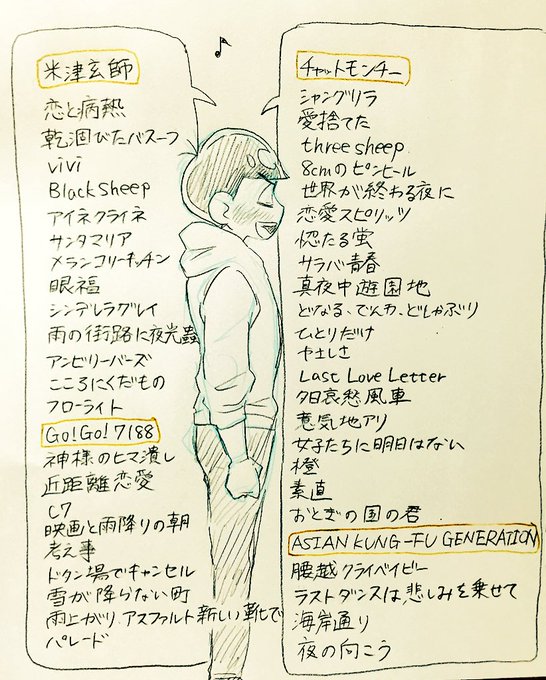 米津玄師
恋と病熱
乾涸びたバス一つ
vivi
Black Sheep
アイネクライネ
サンタマリア
メランコリーキッチン
眼福
シンデレラグレイ
雨の街路に夜光蟲
アンビリーバーズ
こころにくだもの
フローライト
Go!Go!7188
神様のヒマ潰し
近距離恋愛
C7
映画と雨降りの朝
考え事
ドタン場でキャンセル
雪が降らない町
雨上がり、アスファルト新しい靴で
パレード
チャットモンチー
シャングリラ
愛捨てた
three sheep
8cmのピンヒール
世界が終わる夜に
恋愛スピリッツ
惚たる蛍
サラバ青春
真夜中遊園地
どなる、でんわ、どしゃぶり
ひとりだけ
やさしさ
Last Love Letter
夕日哀愁風車
意気地アリ
女子たちに明日はない
橙
素直
おとぎの国の君
ASIAN KUNG-FU GENERATION
腰越クライベイビー
ラストダンスは悲しみを乗せて
海岸通り
夜の向こう